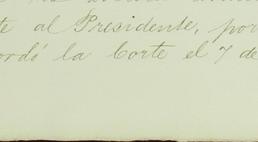 te al Presidente, por
ordó la Corte el 7 de